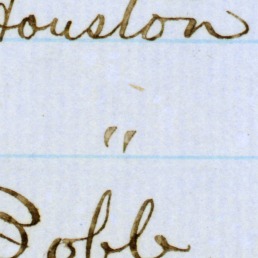 Houston
"
Bobb